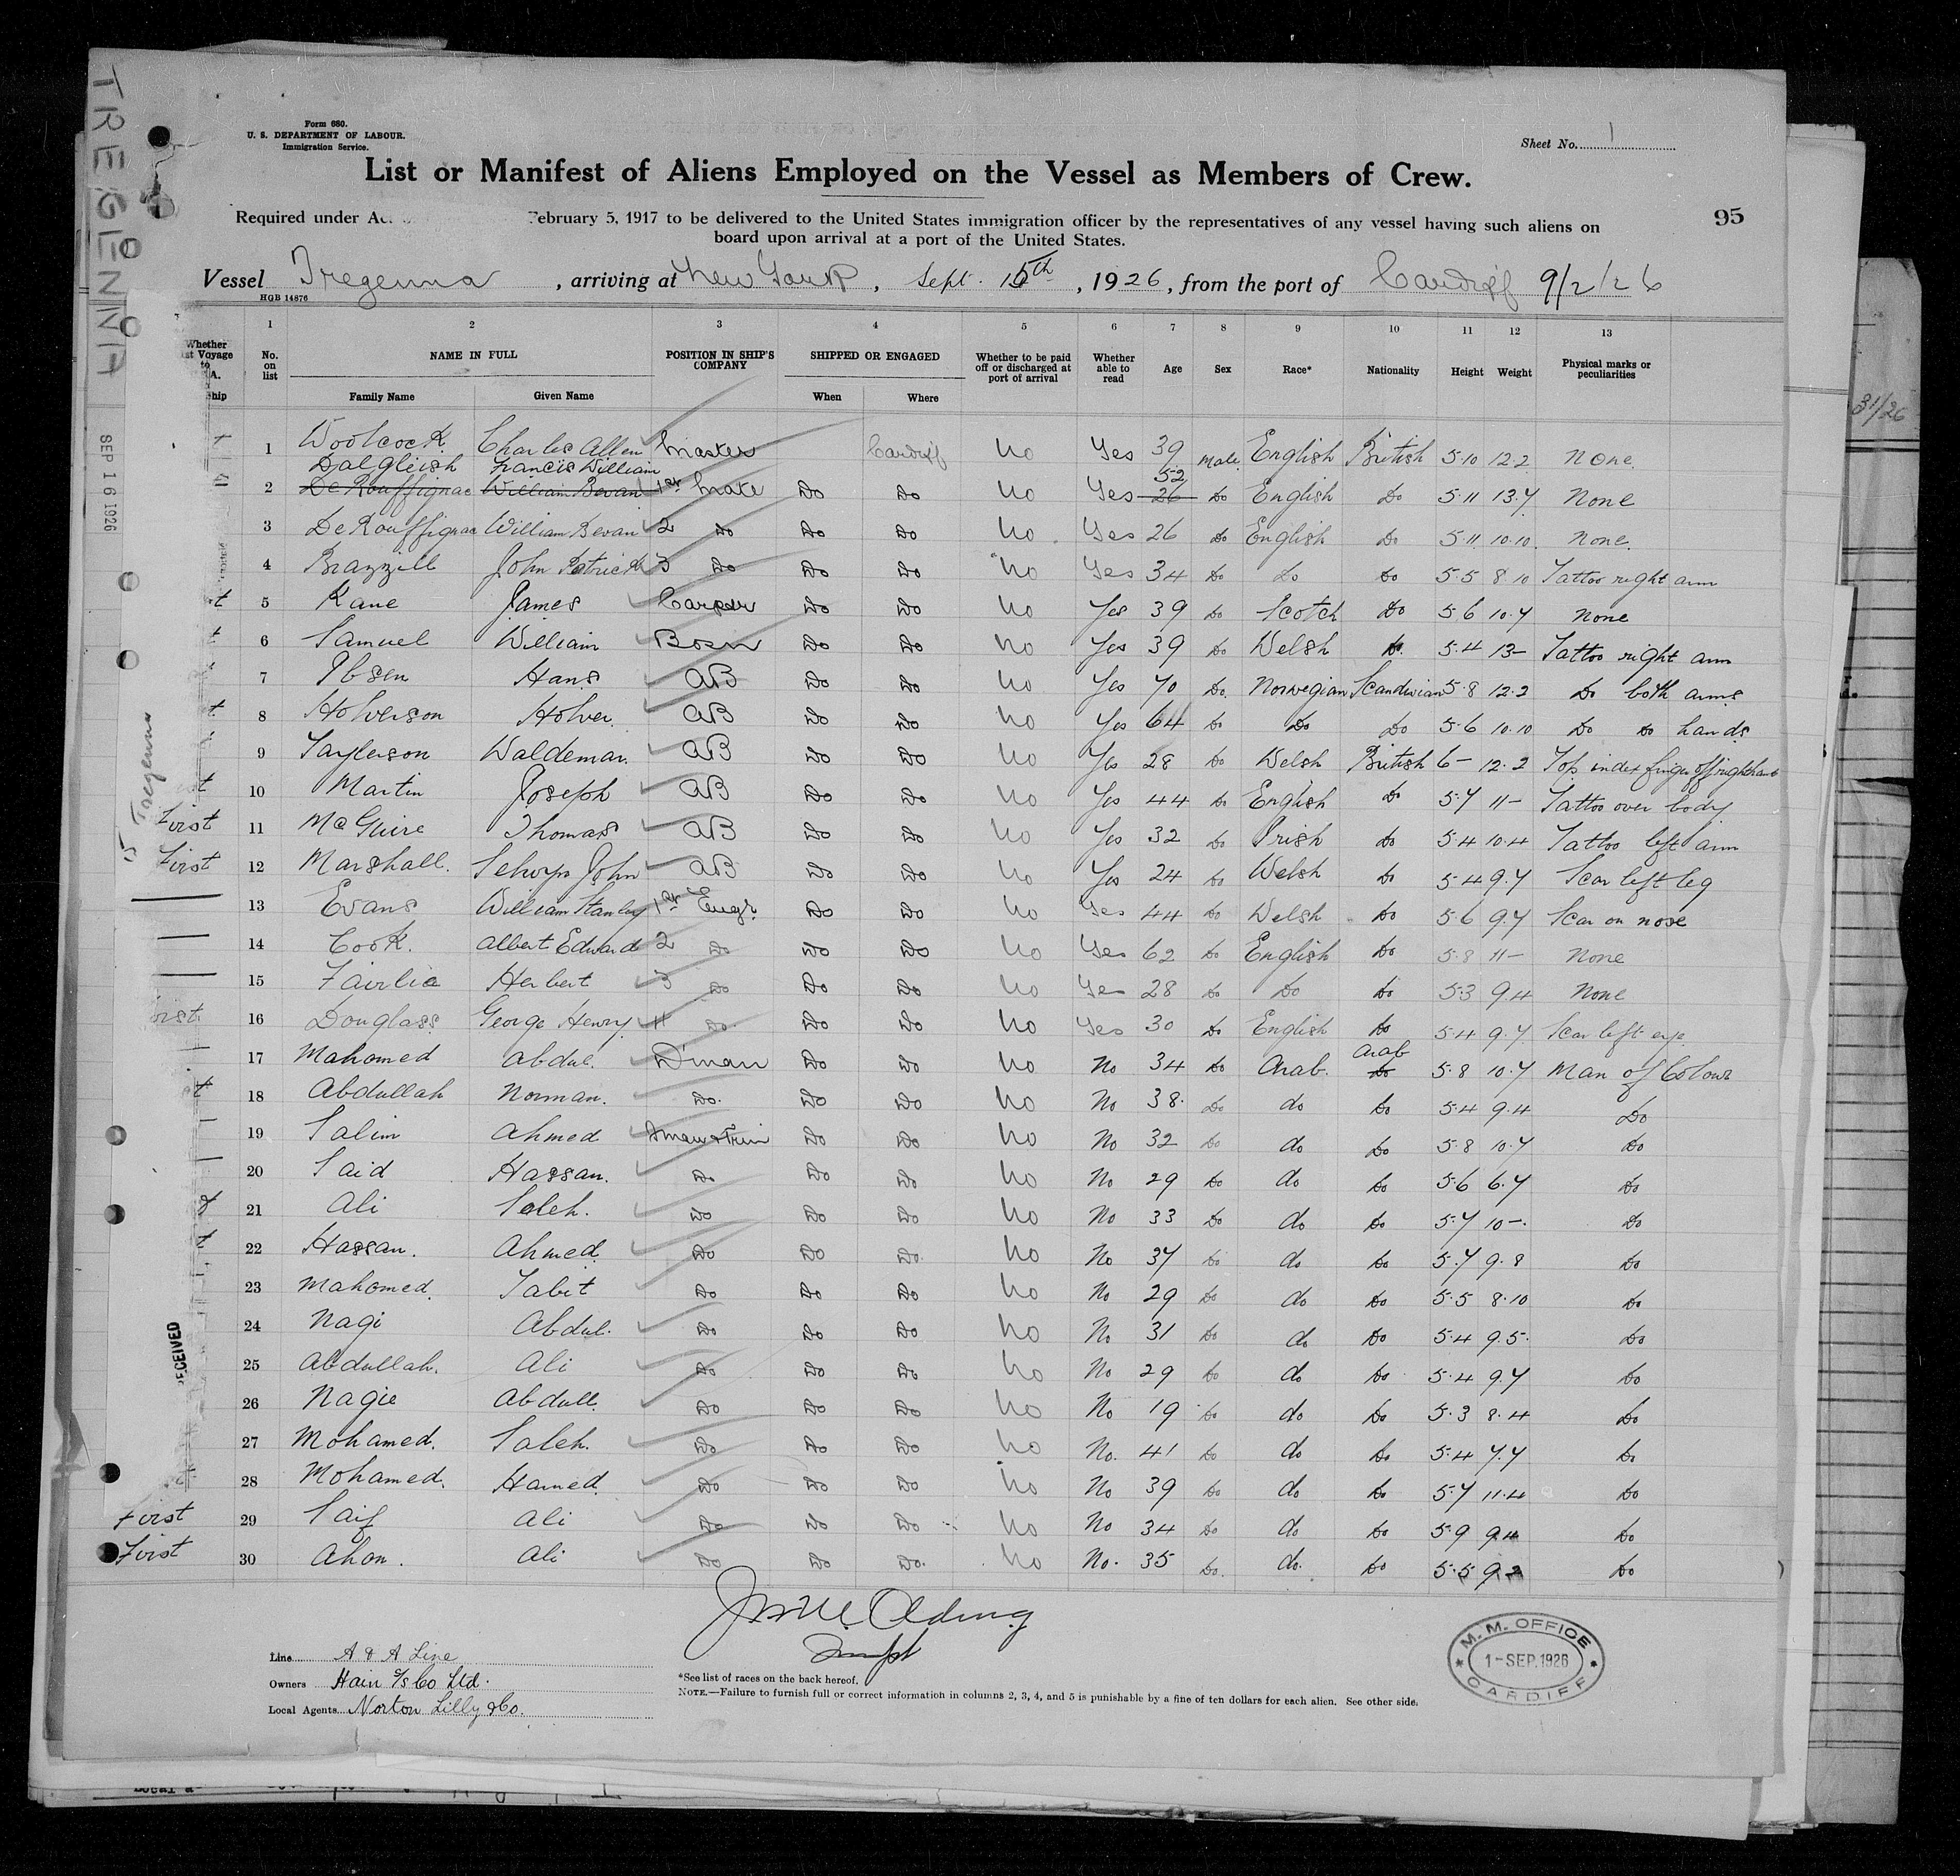 TREGENNA
Form 680.
U. S. DEPARTMENT OF LABOUR.
Immigration Service.
Sheet No. 1
List or Manifest of Aliens Employed on the Vessel as Members of Crew.
Required under Ac February 5, 1917 to be delivered to the United States immigration officer by the representatives of any vessel having such aliens on
board upon arrival at a port of the United States.
95
Vessel Tregenna, arriving at New York, Sept. 15th, 1926, from the port of Cardiff 9/2/26
HGB 14876
1 2 3 4 5 6 7 8 9 10 11 12 13
Whether st Voyage to A. ship No. on list NAME IN FULL POSITION IN SHIP'S COMPANY SHIPPED OR ENGAGED Whether to be paid off or discharged at port of arrival Whether able to read Age Sex Race* Nationality Height Weight Physical marks or peculiarities
Family Name Given Name When Where
1 Woolcock Charles Allen Master Cardiff No Yes 39 Male English British 5.10 12.2 None
Dalgleish Francis William 52
2 De Rouffignac William Bevan 1st Mate Do Do No Yes 26 Do English Do 5.11 13.7 None
3 De Rouffignac William Bevan 2 Do Do Do No Yes 26 Do English Do 5.11 10.10 None
4 Brazzill John Patrick 3 Do Do Do No Yes 34 Do Do Do 5.5 8.10 Tattoo right arm
t 5 Kane James Carptr Do Do No Yes 39 Do Scotch Do 5.6 10.7 None
t 6 Samuel William Bosn Do Do No Yes 39 Do Welsh Do 5.4 13- Tattoo right arm
7 Ibsen Hans AB Do Do No Yes 70 Do Norwegian Scandivian 5.8 12.2 Do both arms
t 8 Holverson Holver. AB Do Do No Yes 64 Do Do Do 5.6 10.10 Do Do hands
9 Taylerson Waldemar. AB Do Do No Yes 28 Do Welsh British 6- 12.2 Top index finger off right hand
t 10 Martin Joseph AB Do Do No Yes 44 Do English Do 5.7 11- Tattoo over body
First 11 McGuire Thomas AB Do Do No Yes 32 Do Irish Do 5.4 10.4 Tattoo left arm
First 12 Marshall. Selwyn John AB Do Do No Yes 24 Do Welsh Do 5.4 9.7 Scar left leg
13 Evans William Stanley 1st Engr Do Do No Yes 44 Do Welsh Do 5.6 9.7 Scar on nose
14 Cook. Albert Edward 2 Do Do Do No Yes 62 Do English Do 5.8 11- None
15 Fairlie Herbert 3 Do Do Do No Yes 28 Do Do Do 5.3 9.4 None
irst 16 Douglass George Henry 4 Do Do Do No Yes 30 Do English Do 5.4 9.7 Scar left eye
Arab
17 Mahomed Abdul. D'man Do Do No No 34 Do Arab. Do 5.8 10.7 Man of Colour
t 18 Abdullah Norman. Do. Do Do No No 38. Do do Do 5.4 9.4 Do
19 Salim Ahmed Do Do No No 32 Do do Do 5.8 10.7 Do
20 Said Hassan. Do Do Do No No 29 Do do Do 5.6 6.7 Do
21 Ali Saleh. Do Do Do No No 33 Do do Do 5.7 10-. Do
t 22 Hassan. Ahmed. Do Do Do No No 37 Do do Do 5.7 9.8 Do
23 Mahomed. Tabit Do Do Do No No 29 Do do Do 5.5 8.10 Do
24 Nagi Abdul. Do Do Do No No 31 Do do Do 5.4 9.5 Do
25 Abdullah. Ali Do Do Do No No 29 Do do Do 5.4 9.7 Do
26 Nagie Abdull. Do Do Do No No 19 Do do Do 5.3 8.4 Do
27 Mohamed. Saleh. Do Do Do No No. 41 Do do Do 5.4 7.7 Do
28 Mohamed. Hamed. Do Do Do No No 39 Do do Do 5.7 11.4 Do
First 29 Saif Ali Do Do Do No No 34 Do do Do 5.9 9.4 Do
First 30 Ahon. Ali Do Do Do. No No. 35 Do. do. Do 5.5 9.2 Do
SEP 16 1926
Tregenna
RECEIVED
31/26
Line A & A Line
Owners Hain S/S Co Ltd.
Local Agents Norton Lilly & Co.
*See list of races on the back hereof.
NOTE.—Failure to furnish full or correct information in columns 2, 3, 4, and 5 is punishable by a fine of ten dollars for each alien. See other side.
M. M. OFFICE
1-SEP.1926
CARDIFF